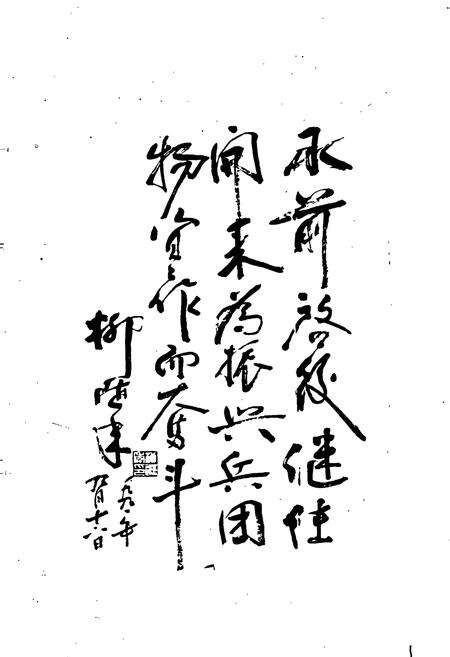 承前启后继往
开来为振兴兵团
物资工作而奋斗
柳随年
一九九一年
九月十六日